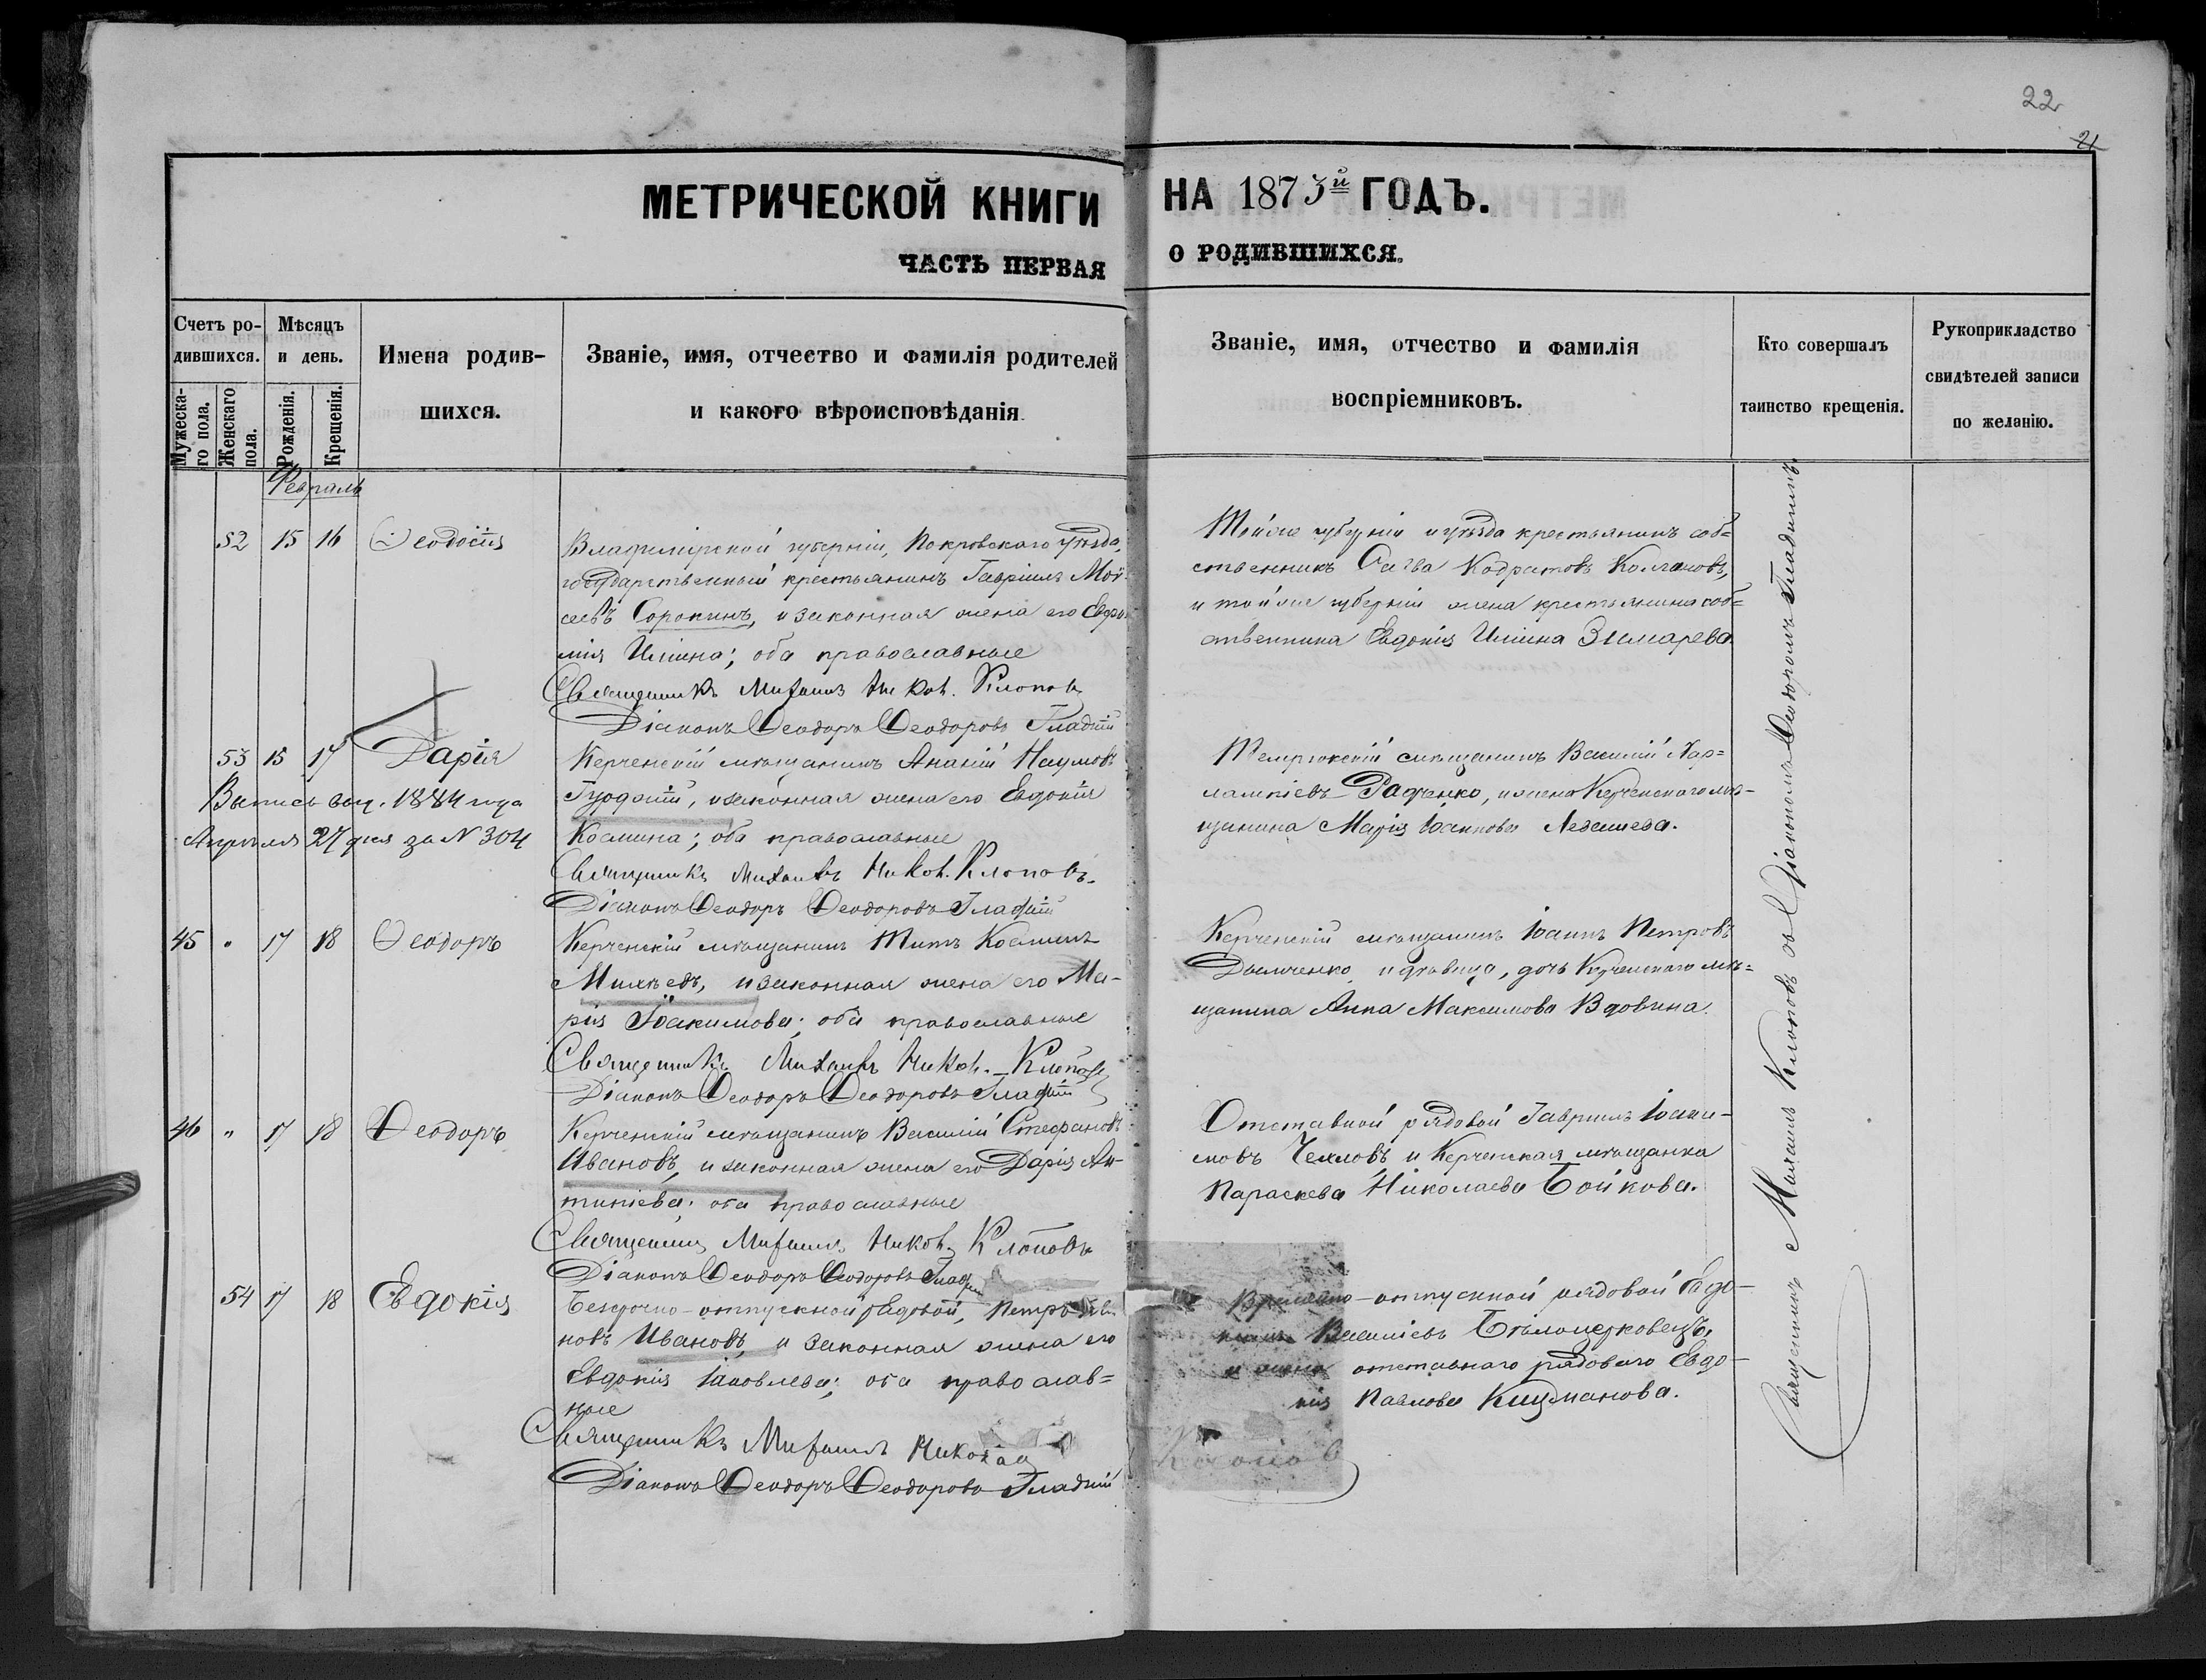 22
21
МЕТРИЧЕСКОЙ КНИГИ НА 1873й ГОДЪ.
ЧАСТЬ ПЕРВАЯ О РОДИВШИХСЯ.
Счетъ ро-
дившихся.
Мужеска-
го пола.
Женскаго
пола.
Мѣсяцъ
и день.
Рожденія.
Крещенія.
Имена родив-
шихся.
Званіе, имя, отчество и фамилія родителей
и какого вѣроисповѣданія
Званіе, имя, отчество и фамилія
воспріемниковъ.
Кто совершалъ
таинство крещенія.
Рукоприкладство
свидѣтелей записи
по желанію.
Февраль
52 15 16 Ѳеодосія
Владимірской губерніи, Покровскаго уѣзда,
государственный крестьянинъ Гавріилъ Мой
сеевъ Сорокинъ, и законная жена его Евфи
мія Ильина; оба православные
Священникъ Михаилъ Никол. Клоповъ
Діаконъ Ѳеодоръ Ѳеодоровъ Гладкій
Тойже губерніи и уѣзда крестьянинъ соб=
ственникъ Савва Кодратовъ
и тойже губерніи жена крестьянина соб=
ственника Евдокія Ильина Зимарева
53 15 17 Дарія
Выпись выд. 1884 года
Апрѣля 27 дня за № 304
Керченскій мѣщанинъ Ананій Наумовъ
и законная жена его Евдокія
Космина; оба православные
Священникъ Михаилъ Никол. Клоповъ
Діаконъ Ѳеодоръ Ѳеодоровъ Гладкій
Темрюкскій мѣщанинъ Василій Хар=
лампіевъ Радченко, и жена Керченскаго мѣ-
щанина Марія Іоаннова
45 " 17 18 Ѳеодоръ
Керченскій мѣщанинъ Титъ Косминъ
Михѣевъ, и законная жена его Ма-
рія Іоакимова; оба православные
Священникъ Михаилъ Никол. Клоповъ
Діаконъ Ѳеодоръ Ѳеодоровъ Гладкій
Керченскій мѣщанинъ Іоаннъ Петровъ
Дымченко и дѣвица, дочь Керченскаго мѣ=
щанина Анна Максимова Вдовина.
46 " 17 18 Ѳеодоръ
Керченскій мѣщанинъ Василій Стефановъ
Ивановъ, и законная жена его Дарія Ан-
типіева; оба православные
Священникъ Михаилъ Никол. Клоповъ
Діаконъ Ѳеодоръ Ѳеодоровъ Гладкій
Отставной рядовой Гавріилъ Іоаки-
мовъ Чехловъ и Керченская мѣщанка
Параскева Николаева Бойкова.
54 17 18 Евдокія
Безсрочно-отпускной рядовой, Петръ
новъ Ивановъ, и законная жена его
Евдокія Іаковлева; оба православ=
ные
Священникъ Михаилъ Николай Клоповъ
Діаконъ Ѳеодоръ Ѳеодоровъ Гладкій
Временно-отпускной рядовой Евдо-
кимъ Василіевъ Бѣлоцерковецъ,
и жена отставнаго рядоваго Евдо-
кія Павлова Кицманова.
Священникъ Михаилъ Клоповъ съ Діакономъ Ѳеодоромъ Гладкимъ